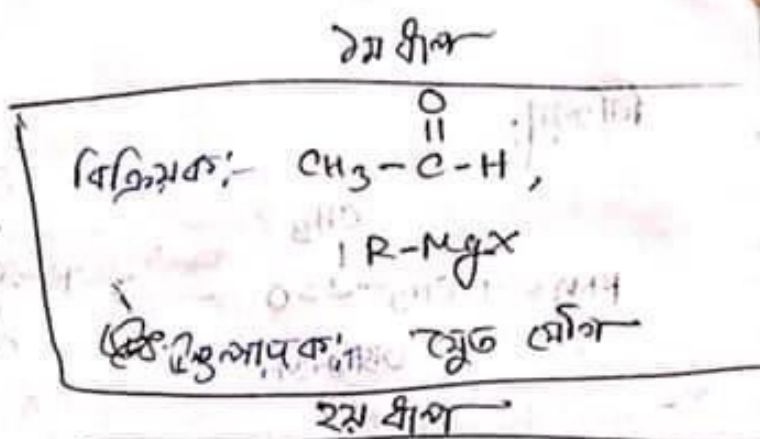 ১ম ধাপ
O
||
বিক্রিয়ক:- CH₃-C-H,
R-MgX
যুত যৌগ
২য় ধাপ